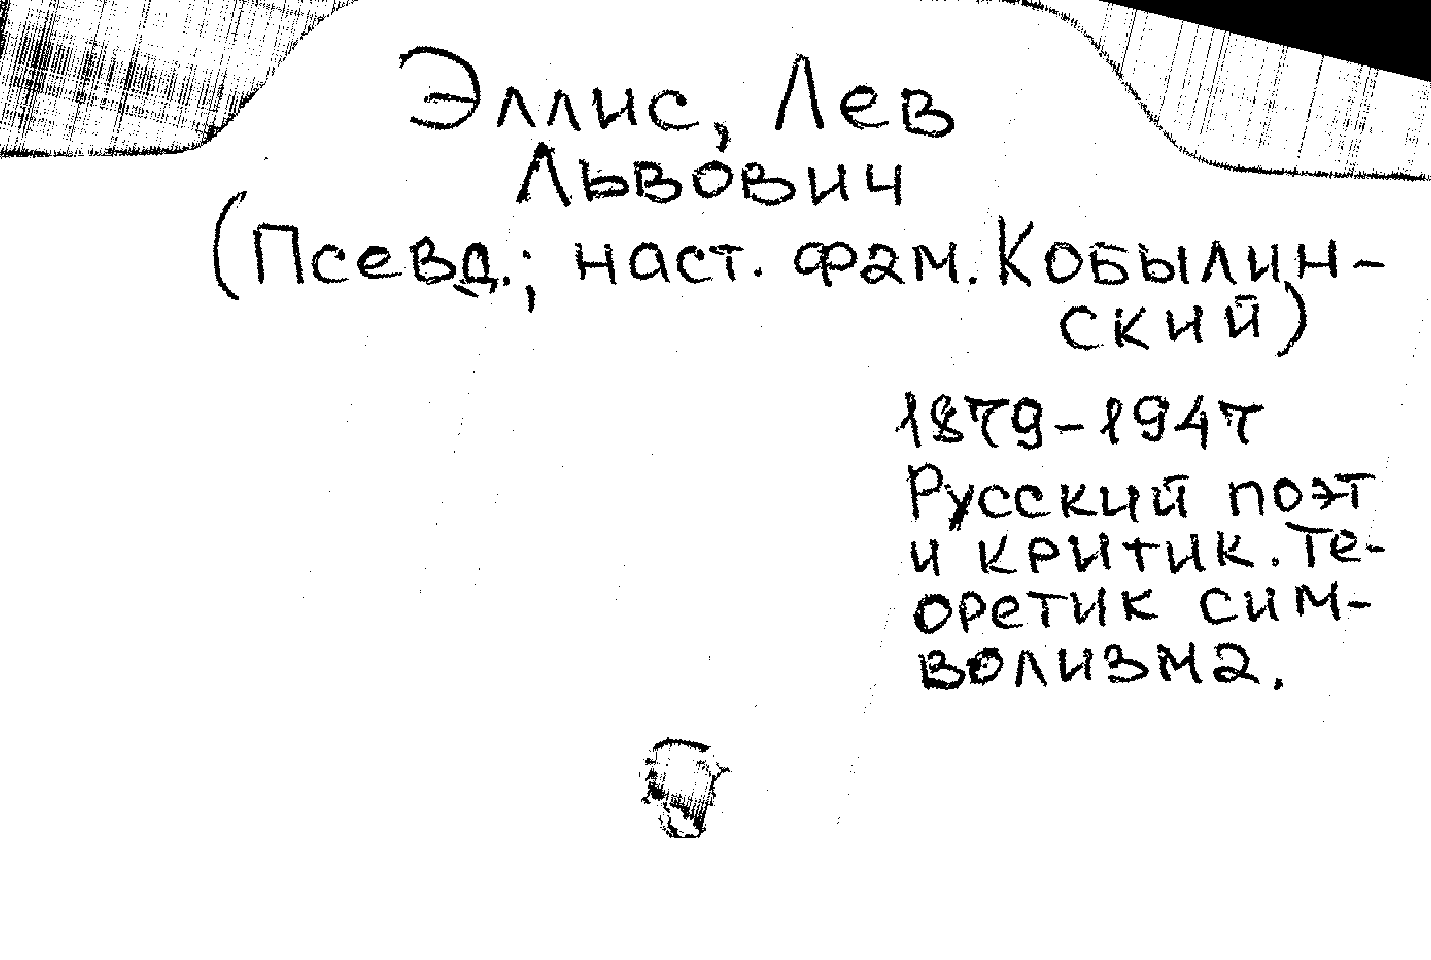 Эллис, Лев
Львович
(Псевд.; наст. фам. Кобылин-
ский)
1879-1947
Русский поэт
и критик. Те-
оретик сим-
волизма.